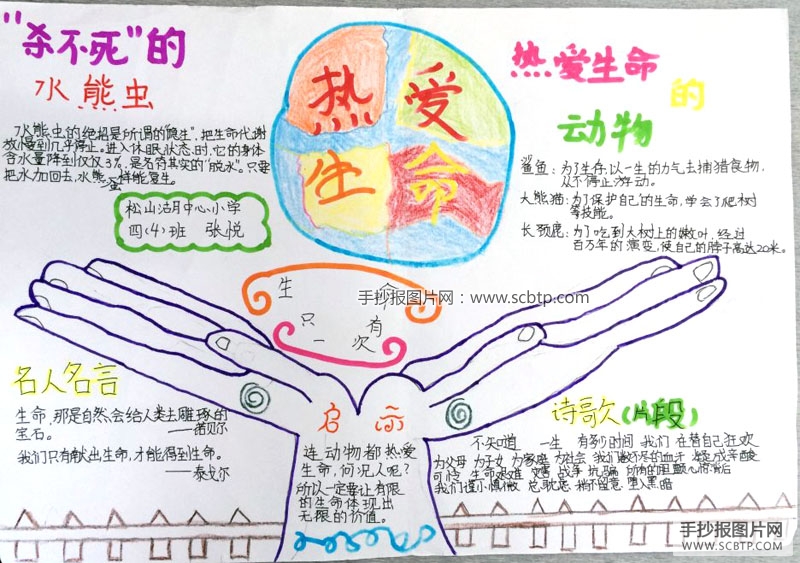 "杀不死"的
水熊虫
水熊虫的绝招是所谓的"隐生",把生命代谢
放慢到几乎停止。进入休眠状态时,它的身体
含水量降到仅仅3%,是名符其实的"脱水"。只要
把水加回去,水熊虫一样能复生。
松山沽月中心小学
四(4)班 张悦
热爱
生命
热爱生命
的
动物
鲨鱼:为了生存,以一生的力气去捕猎食物,
从不停止游动。
大熊猫:为了保护自己的生命,学会了爬树
等技能。
长颈鹿:为了吃到大树上的嫩叶,经过
百万年的演变,使自己的脖子高达20米。
生命
只有
一次
手抄报图片网:www.scbtp.com
名人名言
生命,那是自然会给人类去雕琢的
宝石。——诺贝尔
我们只有献出生命,才能得到生命。
——泰戈尔
启示
连动物都热爱
生命,何况人呢?
所以一定要让有限
的生命体现出
无限的价值。
诗歌(片段)
不知道 一生 有多少时间 我们 在替自己狂欢
为父母 为子女 为家庭 为社会 我们数不尽的血汗 凝成辛酸
可惜 生命艰难 灾难 战争 坑骗 所有的胆颤心惊背后
我们谨小慎微 总耽忌 稍不留意 堕入黑暗
手抄报图片网
WWW.SCBTP.COM